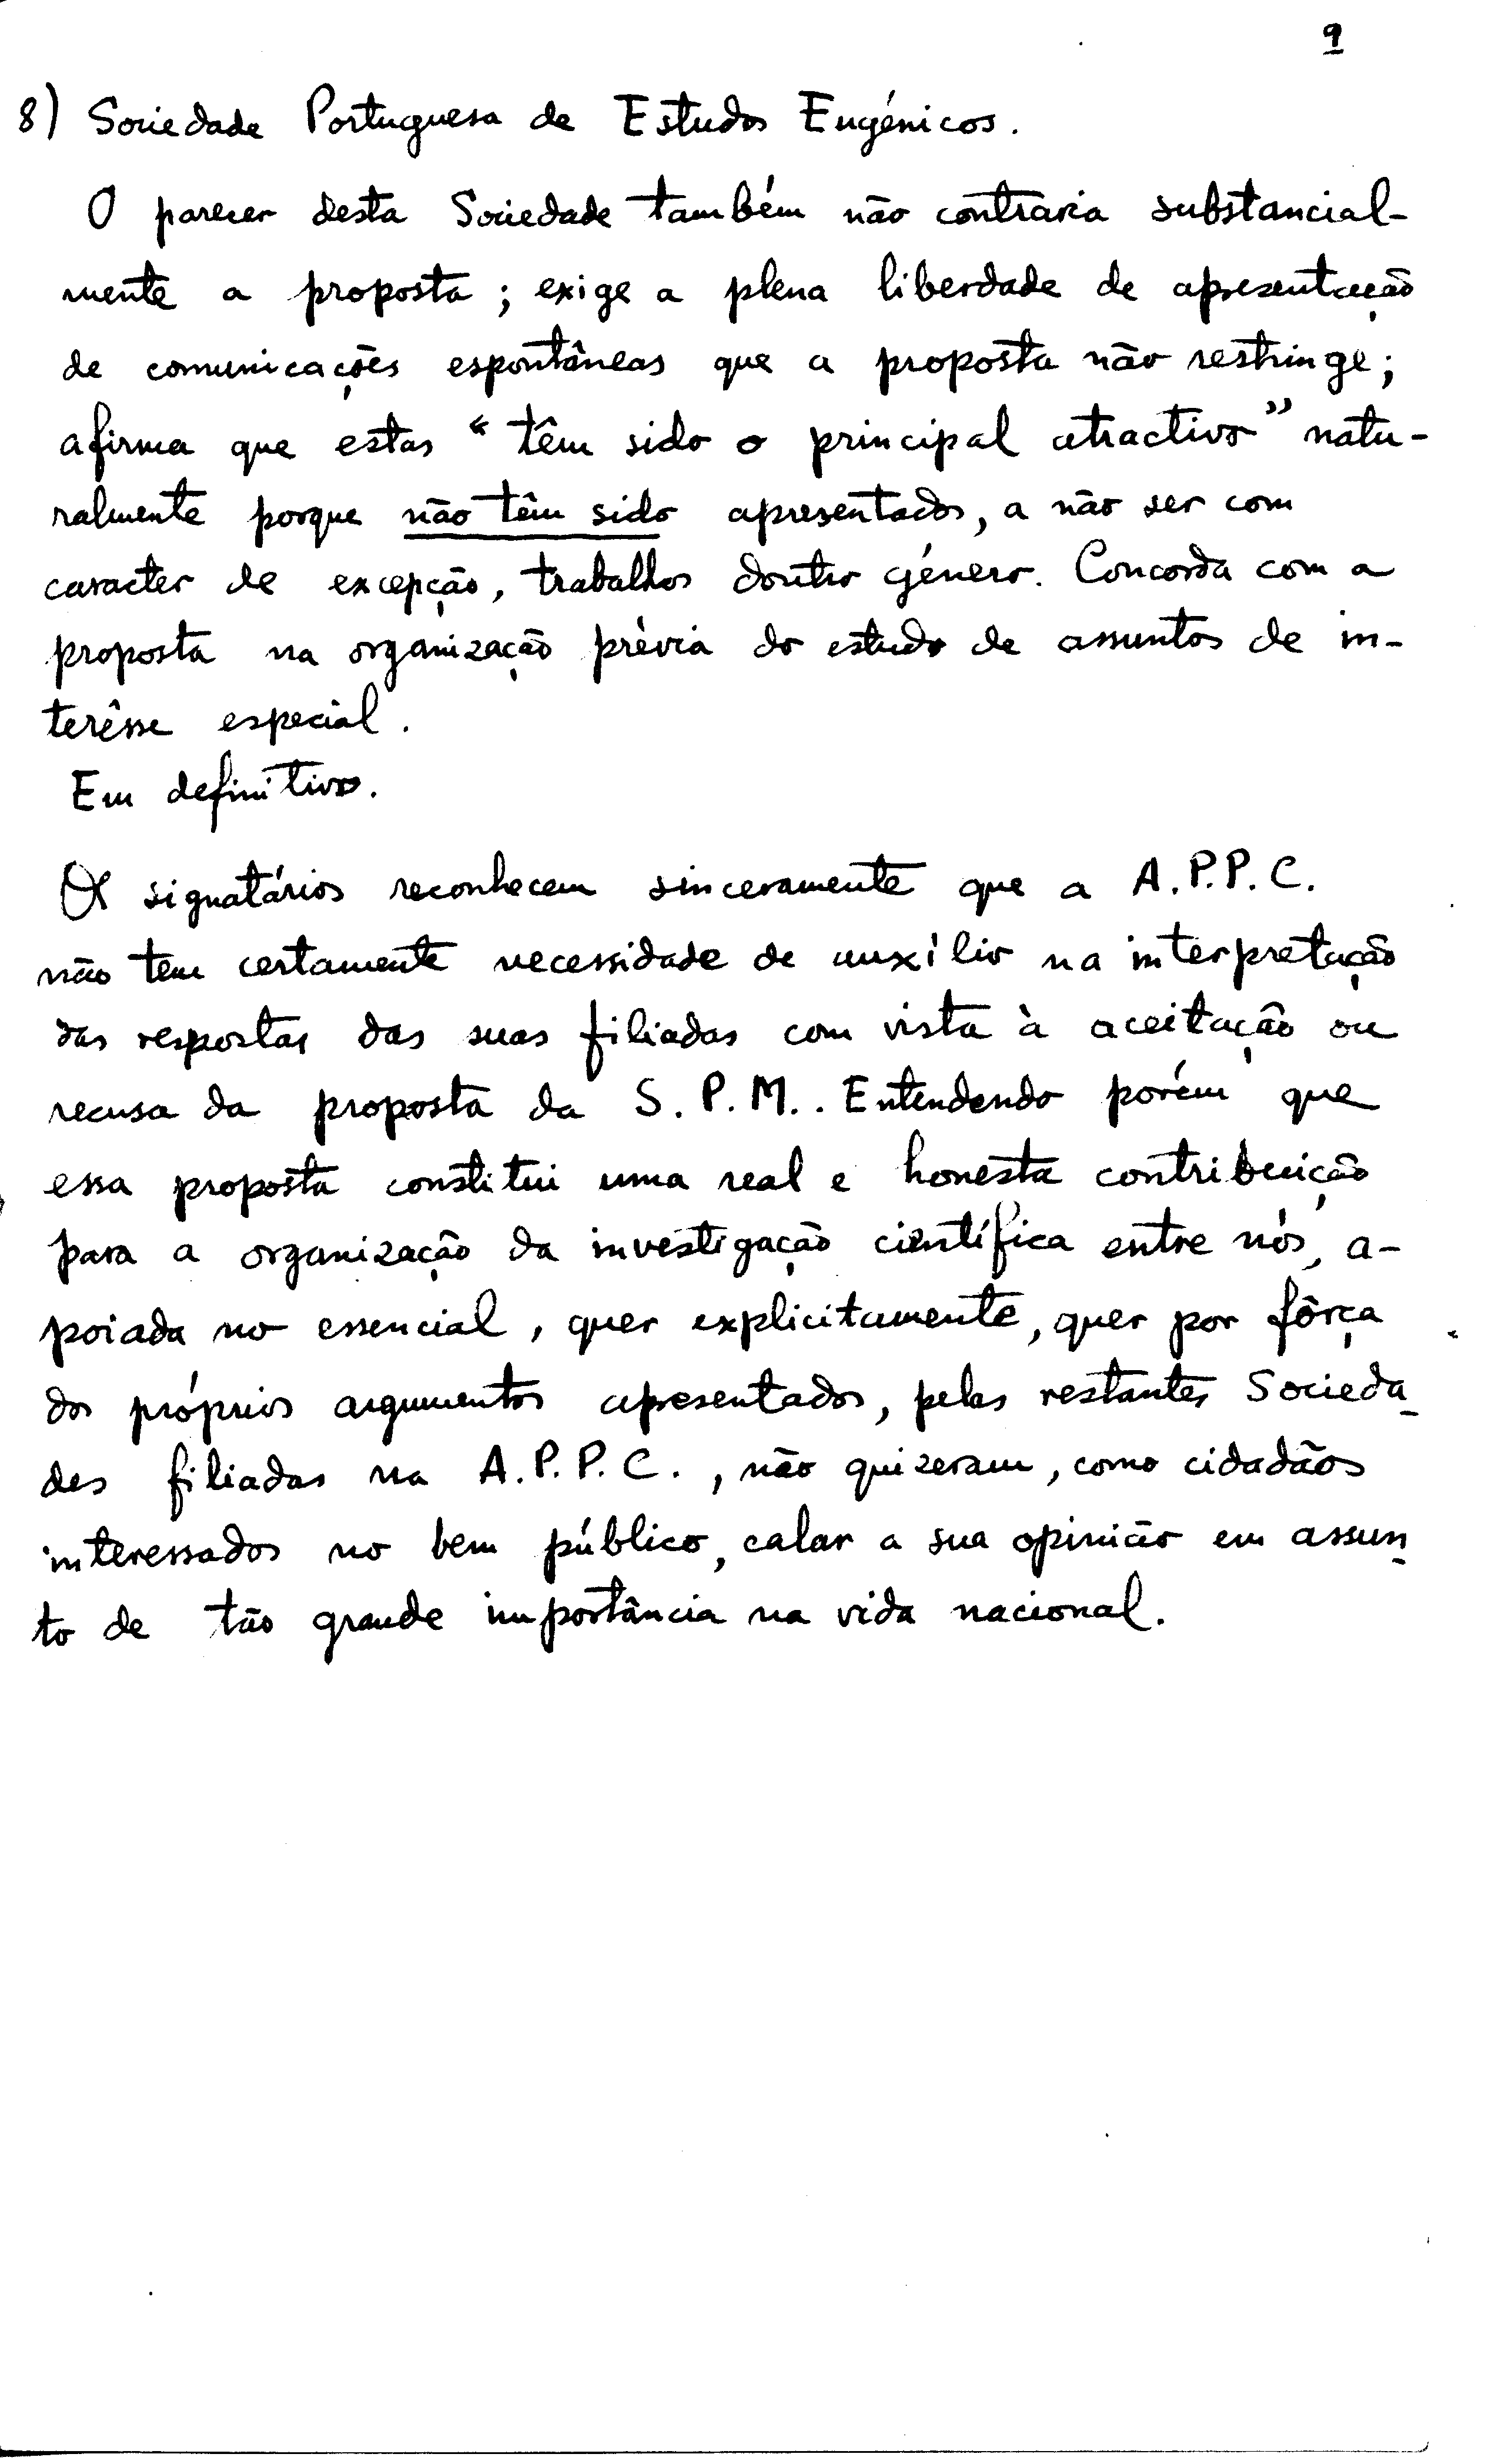 9
8) Sociedade Portuguesa de Estudos Eugénicos.
O parecer desta Sociedade também não contraria substancial-
mente a proposta; exige a plena liberdade de apresentação
de comunicações espontâneas que a proposta não restringe;
afirma que estas "têm sido o principal atractivo" natu-
ralmente porque não têm sido apresentados, a não ser com
caracter de excepção, trabalhos doutro género. Concorda com a
proposta na organização prévia do estudo de assuntos de in-
terêsse especial.
Em definitivo.
Os signatários reconhecem sinceramente que a A.P.P.C.
não tem certamente necessidade de auxílio na interpretação
das respostas das suas filiadas com vista à aceitação ou
recusa da proposta da S.P.M.. Entendendo porém que
essa proposta constitui uma real e honesta contribuição
para a organização da investigação científica entre nós, a-
poiada no essencial, quer explicitamente, quer por fôrça
dos próprios argumentos apresentados, pelas restantes Socieda-
des filiadas na A.P.P.C., não quizeram, como cidadãos
interessados no bem público, calar a sua opinião em assun-
to de tão grande importância na vida nacional.